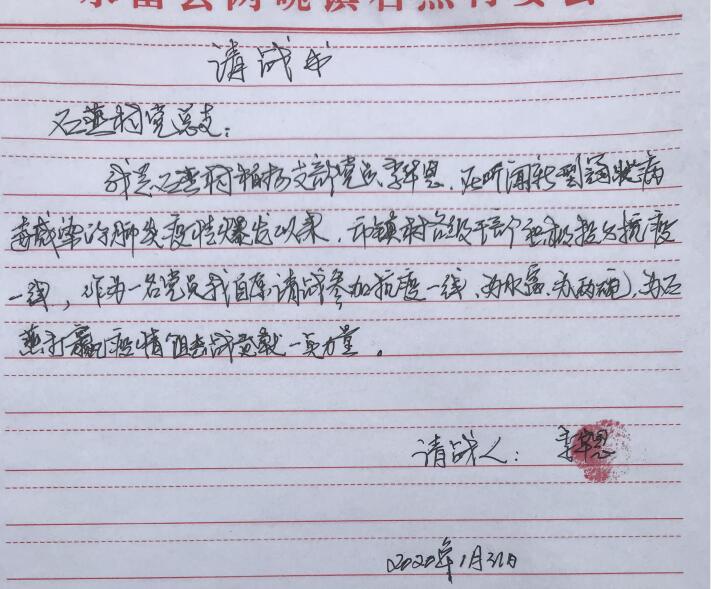 请战书
石燕村党总支：
我是石燕村 支部党员李华恩，在听闻新型冠状病
毒感染的肺炎疫情爆发以来，部镇村各级干部积极投身抗疫
一线，作为一名党员我自愿请战参加抗疫一线，为水富、为两碗、为石
燕打赢疫情阻击战贡献一点力量。
请战人：李华恩
2020年1月31日